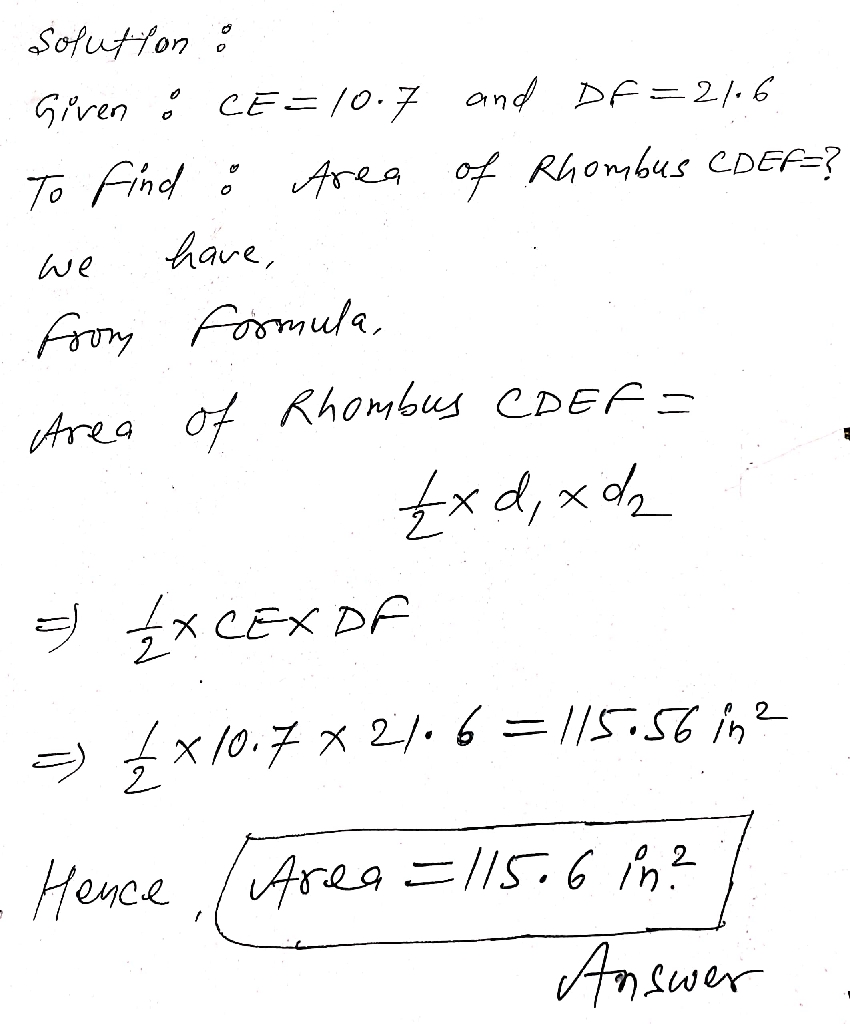 Solution :
Given : CE = 10.7 and DF = 21.6
To find : Area of Rhombus CDEF=?
we have,
from formula,
Area of Rhombus CDEF =
1/2 × d1 × d2
⇒ 1/2 × CE × DF
⇒ 1/2 × 10.7 × 21.6 = 115.56 in²
Hence, Area = 115.6 in²
Answer